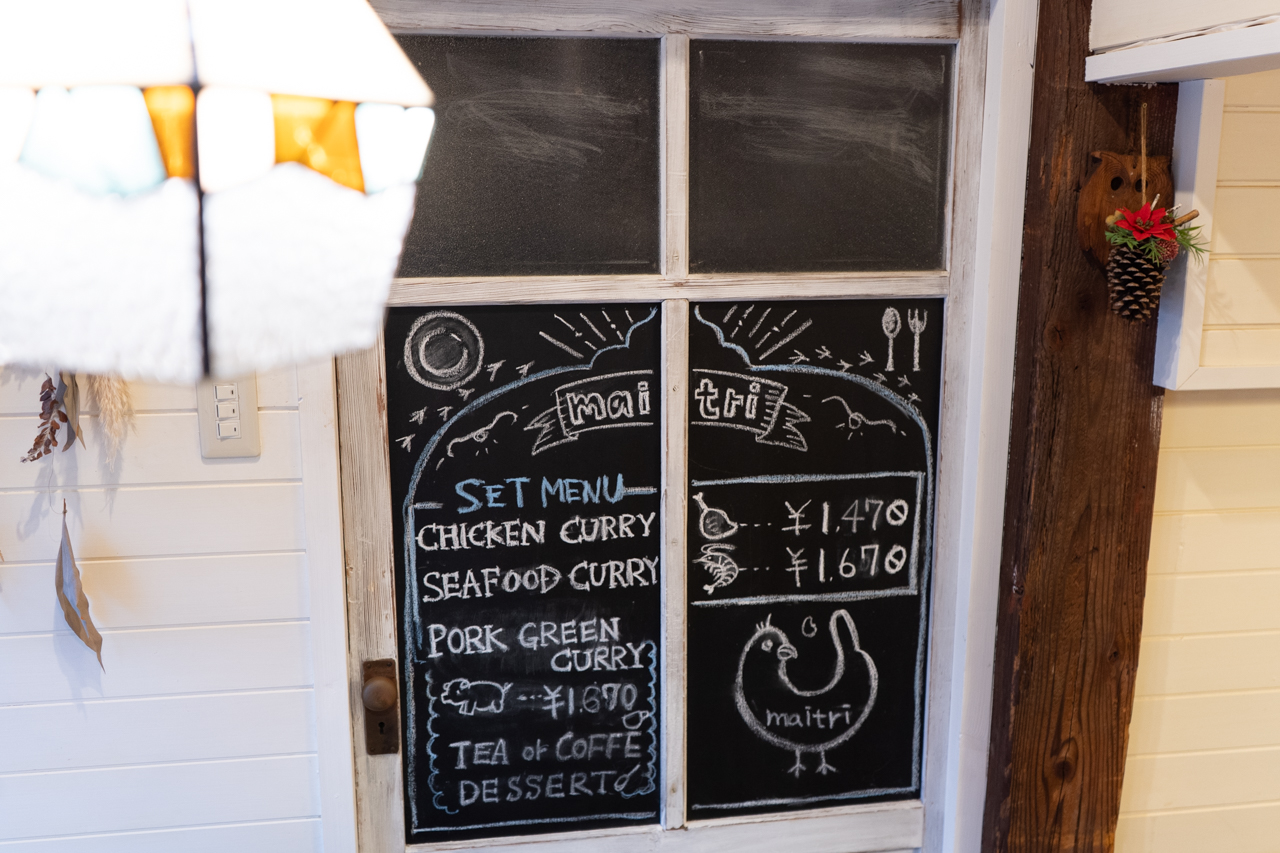 maitri
SET MENU
CHICKEN CURRY ¥1.470
SEAFOOD CURRY ¥1.670
PORK GREEN
CURRY
¥1.670
TEA or COFFE
DESSERT
maitri